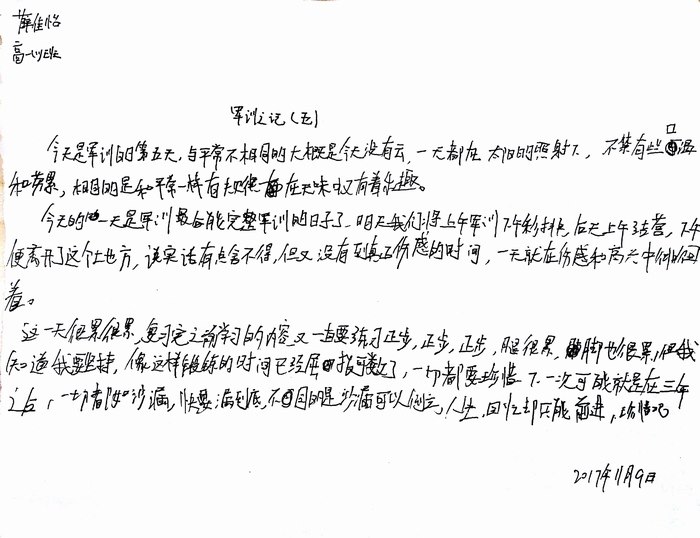 薛佳怡
高一(1)班
军训之记(五)
今天是军训的第五天,与平常不相同的大概是今天没有云,一天都在太阳的照射下,不禁有些口渴
和劳累,相同的是和平常一样有规律在无味中又有着乐趣。
今天的一天是军训最后能完整军训的日子了,明天我们将上午军训下午彩排,后天上午结营,下午
便离开了这个地方,说实话有点舍不得,但又没有到真正伤感的时间,一天就在伤感和高兴中徘徊
着。
这一天很累很累,复习完之前学习的内容又一直要练习正步,正步,正步,腿很累,脚也很累,但我
知道我要坚持,像这样锻炼的时间已经屈指可数了,一切都要珍惜下一次可能就是在三年
之后,一切都如沙漏,快要漏到底,不同的是沙漏可以倒立,人生,回忆却只能前进,珍惜吧
2017年11月9日